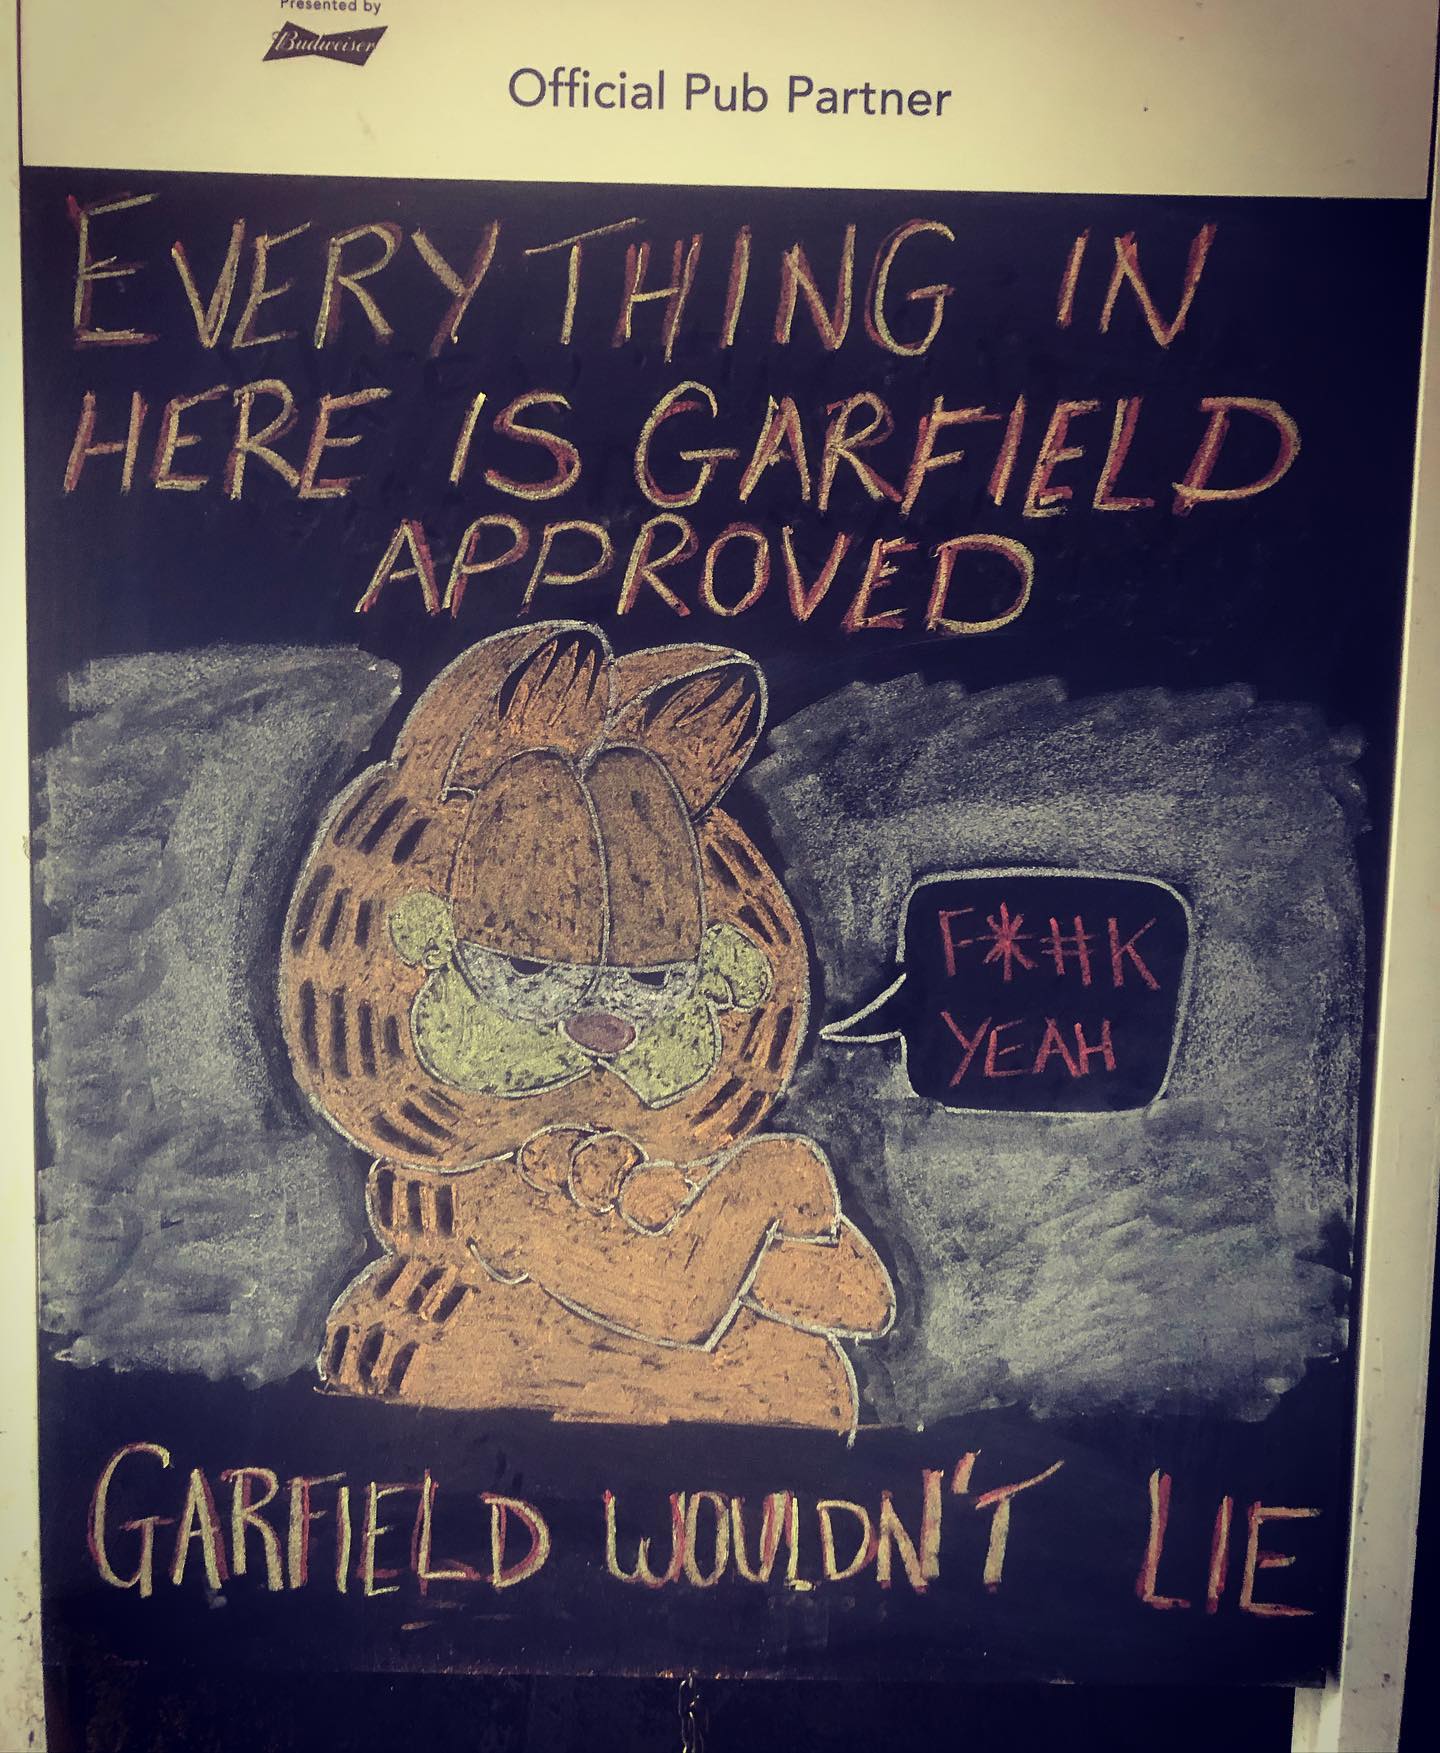 Presented by
Budweiser
Official Pub Partner
EVERYTHING IN
HERE IS GARFIELD
APPROVED
F*#K
YEAH
GARFIELD WOULDN'T LIE